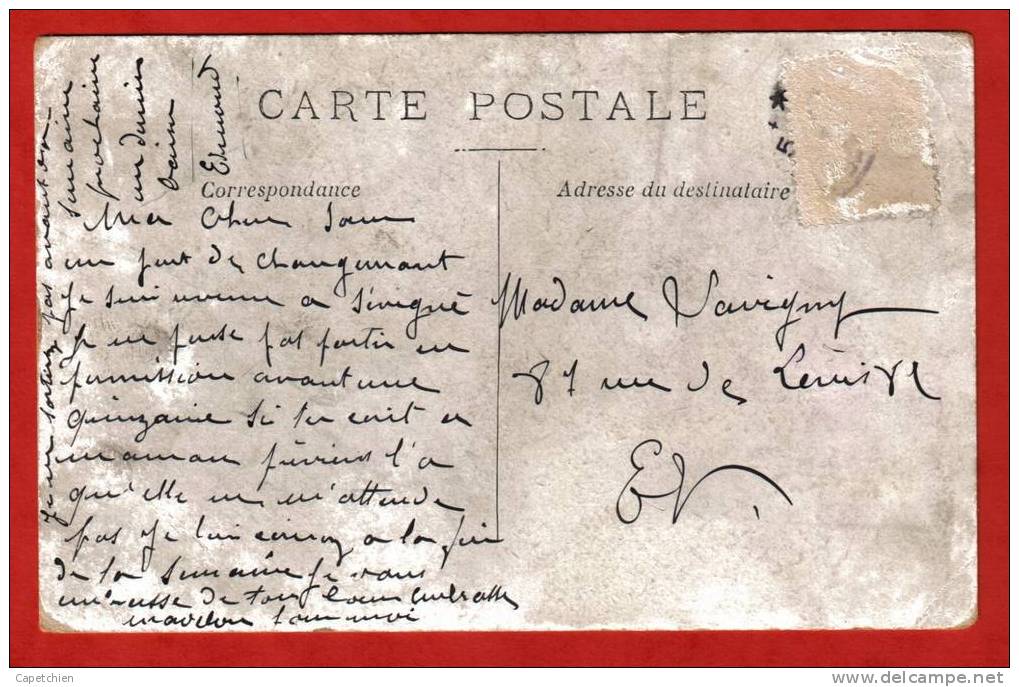 CARTE POSTALE
Correspondance
Adresse du destinataire
Ma Cher Sœur
un part de changemant
Je suis a Sévigné
Je ne passe pas partir en
permission avant une
quinzaine si tu ecrit a
maman préviens l'a
qu'elle ne m'attende
pas Je lui a la fin
de la Semaine Je vous
de tout Cœur embrasse
pour moi
Je ne sortirez pas avant la
semaine
prochaine
un demin
baiser
Edmond
Madame Savigny
81 rue de
EV.
Capetchien
www.delcampe.net